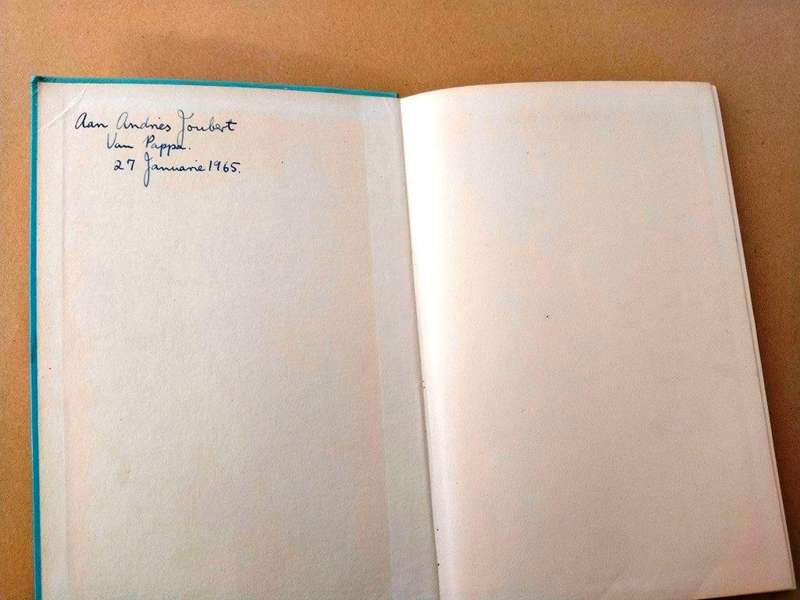 Aan Andries Joubert
Van Pappa.
27 Januarie 1965.